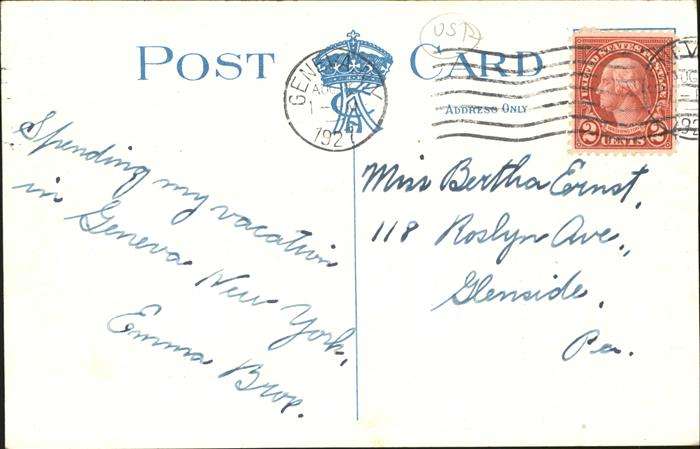 USA
POST CARD
ADDRESS ONLY
GENEVA
192
UNITED STATES POSTAGE
WASHINGTON
2 CENTS 2
Spending my vacation
in Geneva New York.
Emma Bros.
Miss Bertha Ernst,
118 Roslyn Ave.,
Glenside,
Pa.